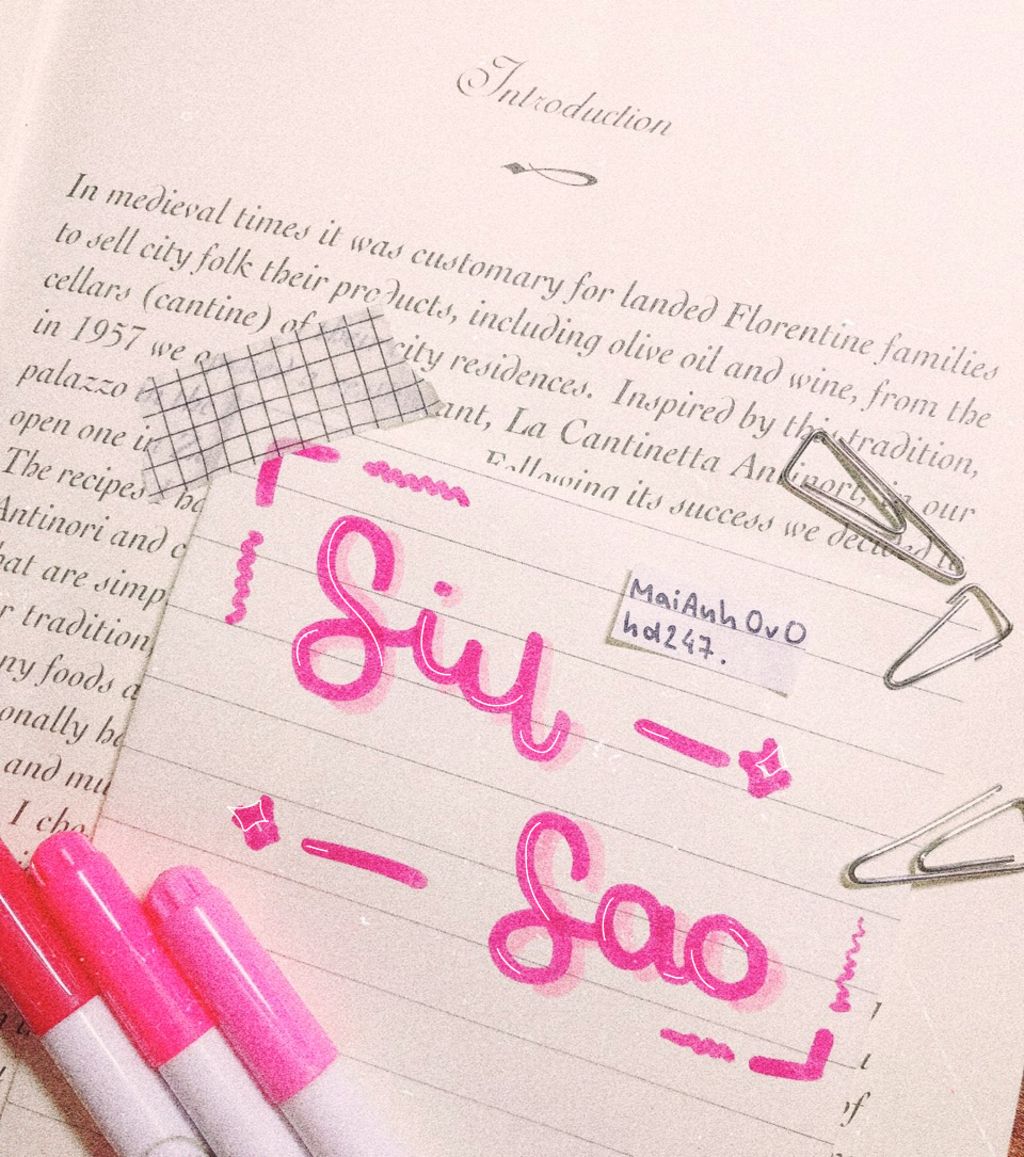 Introduction
In medieval times it was customary for landed Florentine families
to sell city folk their products, including olive oil and wine, from the
cellars (cantine) of city residences. Inspired by this tradition,
in 1957 we ant, La Cantinetta Antinori, in our
palazzo Following its success we decided to
open one in
The recipes
Antinori and
that are simp
r tradition
ny foods a
onally be
and mu
I cho
MaiAnhOvO
hd247.
Siu
Sao
of